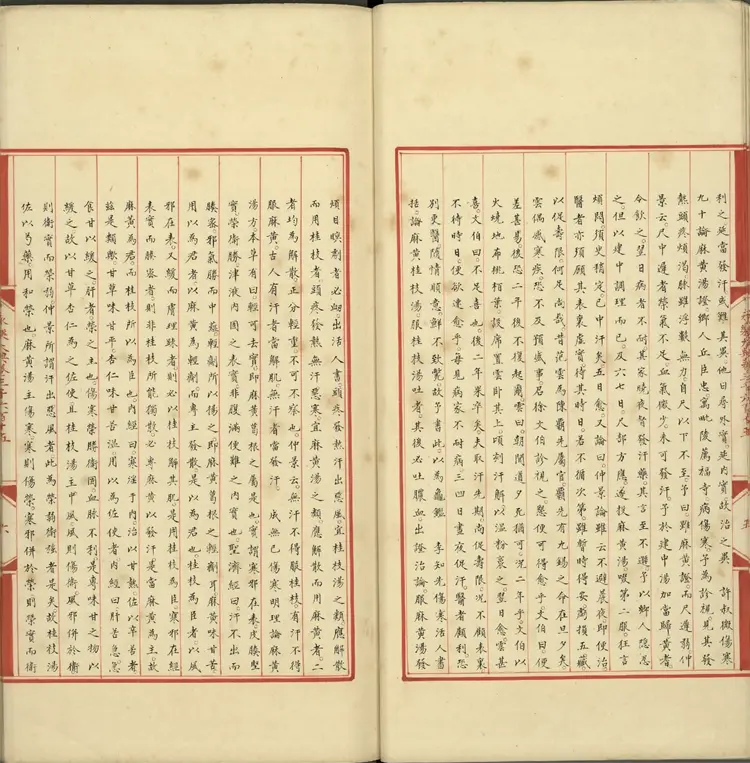 利之是當發汗或轉其異他日唇外實是內實故治之異 許叔微傷寒
九十論麻黃湯證鄉人丘臣忠寓毗陵薦福寺病傷寒予為診視其發
熱頭疼煩渴脉雖浮數無力自尺以下不至予曰雖麻黃證而尺遲弱仲
景云尺中遲者榮氣不足血氣微少未可發汗予於建中湯加當歸黃耆
令飲之翌日病者不耐其家曉夜督發汗藥其言至不遜予以鄉人隱忍
之但以建中調理而已及六七日尺部方應遂投麻黃湯啜第二服狂言
煩悶須臾稍定已中汗矣五日愈又論曰仲景論雖云不避晨夜即便治
醫者亦須顧其表裏虛實待其時日若不循次第雖暫時得安虧損五臟
以促壽限何足尚哉昔范雲為陳霸先屬官霸先有九錫之命在旦夕矣
雲偶感寒疾恐不及預盛事召徐文伯診視之懇便可得愈乎文伯曰便
差甚易後恐二年後不復起爾雲曰朝聞道夕死猶可况二年乎文伯以
火燒地布桃栢葉設席置雲即其上頃刻汗解以溫粉裛之翌日愈雲甚
喜文伯曰不足喜也後二年果卒矣夫取汗先期尚促壽限况不顧表裏
不待時日便欲速愈乎每見病家不耐病三四日晝夜促汗醫者顧利恐
別更醫隨情順意鮮不致斃故予書此以為龜鑑 李知先傷寒活人書
括論麻黃桂枝湯服桂枝湯吐者其後必吐膿血出證治論服麻黃湯發
煩目瞑劇者必衂出活人書頭疼發熱汗出惡風宜桂枝湯之類應解散
而用桂枝者頭疼發熱無汗惡寒宜麻黃湯之類應解散而用麻黃者二
者均為解散正分輕重不可不察也仲景云無汗不得服桂枝有汗不得
服麻黃古人有汗者當解肌無汗者當發汗 成無已傷寒明理論麻黃
湯方本草有曰輕可去實即麻黃葛根之屬是也實謂寒邪在表皮腠堅
實榮衛勝津液內固之表實非腹滿便難之內實也聖濟經曰汗不出而
腠密邪氣勝而中蘊輕劑所以揚之即麻黃葛根之輕劑耳麻黃味甘苦
用以為君者以麻黃為輕劑而專主發散是以為君也桂枝為臣寒者以風
邪在表又緩而膚理踈者則必以桂枝解其肌是用桂枝為臣寒邪在經
表實而腠密者則非桂枝所能獨散必專麻黃以發汗是當麻黃為主故
麻黃為君而桂枝所以為臣也內經曰寒淫于內治以甘熱佐以辛苦者
茲是類歟甘草味甘平杏仁味甘苦溫用以為佐使者內經曰肝苦急急
食甘以緩之肝者榮之主也傷寒榮勝衛固血脉不利是專味甘之物以
緩之故以甘草杏仁為之佐使且桂枝湯主中風風則傷衛風邪併於衛
則衛實而榮弱仲景所謂汗出惡風者此為榮弱衛强者是矣故桂枝湯
佐以芍藥用和榮也麻黃湯主傷寒寒則傷榮寒邪併於榮則榮實而衛